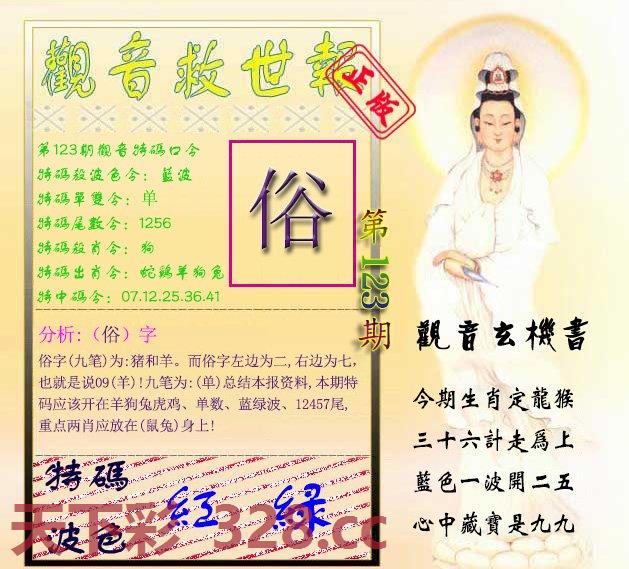 觀音救世報
正版
第123期觀音特碼口令
特碼殺波色令：藍波
特碼單雙令：单
特碼尾數令：1256
特碼殺肖令：狗
特碼出肖令：蛇鷄羊狗兔
特中碼令：07.12.25.36.41
俗
第123期
分析:（俗）字
俗字(九笔)为:猪和羊。而俗字左边为二,右边为七，
也就是说09(羊)!九笔为:(单)总结本报资料,本期特
码应该开在羊狗兔虎鸡、单数、蓝绿波、12457尾,
重点两肖应放在(鼠兔)身上!
特碼
波色
紅 緑
天下彩 328.cc
觀音玄機書
今期生肖定龍猴
三十六計走爲上
藍色一波開二五
心中藏寶是九九